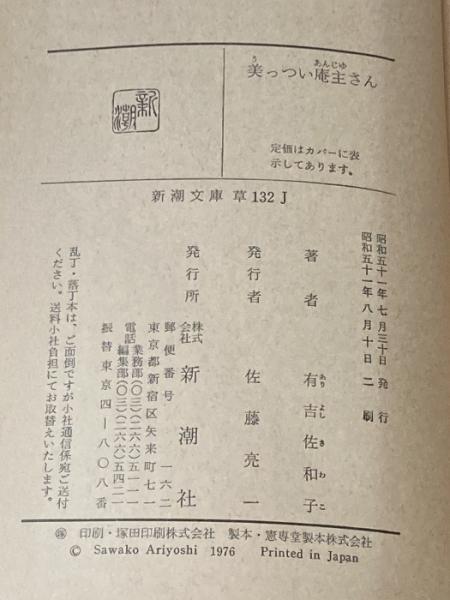 美っつい庵主さん
う
あんじゆ
定価はカバーに表
示してあります。
新潮
新潮文庫 草132J
昭和五十一年七月三十日 発行
昭和五十一年八月十日 二刷
著者 有吉佐和子
あり よし さ わ こ
発行者 佐藤亮一
発行所 株式会社 新潮社
郵便番号 一六二
東京都新宿区矢来町七一
電話 業務部(〇三)(二六六)五一一一
編集部(〇三)(二六六)五四二一
振替東京四―八〇八番
乱丁・落丁本は、ご面倒ですが小社通信係宛ご送付
ください。送料小社負担にてお取替えいたします。
印刷・塚田印刷株式会社 製本・憲専堂製本株式会社
© Sawako Ariyoshi 1976 Printed in Japan